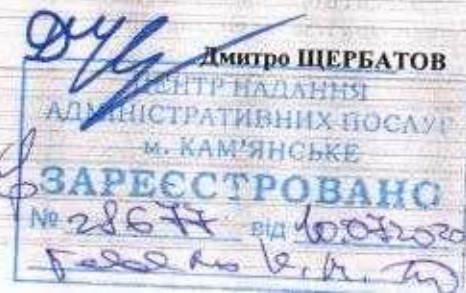 Дмитро ЩЕРБАТОВ
ЦЕНТР НАДАННЯ
АДМІНІСТРАТИВНИХ ПОСЛУГ
м. КАМ'ЯНСЬКЕ
ЗАРЕЄСТРОВАНО
№ 28677 від 10.072020